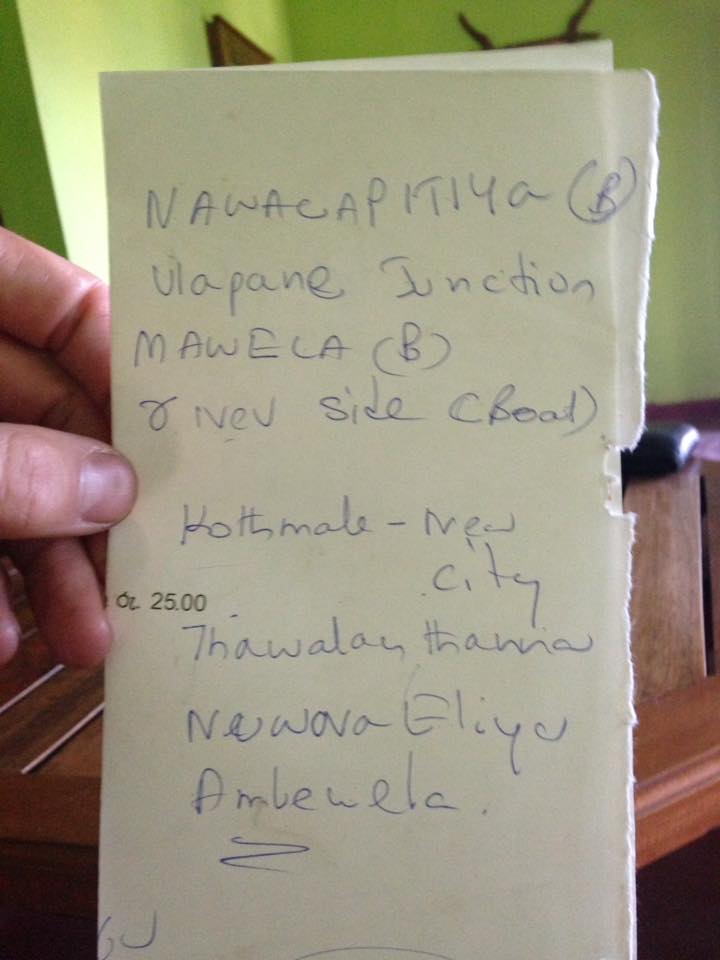 NAWACAPITIYa (B)
Ulapane Junction
MAWELA (B)
r Nev side (Boat)
Kothmale - New
city
රු. 25.00
Thawalanthanna
Neuwora Eliya
Ambewela.